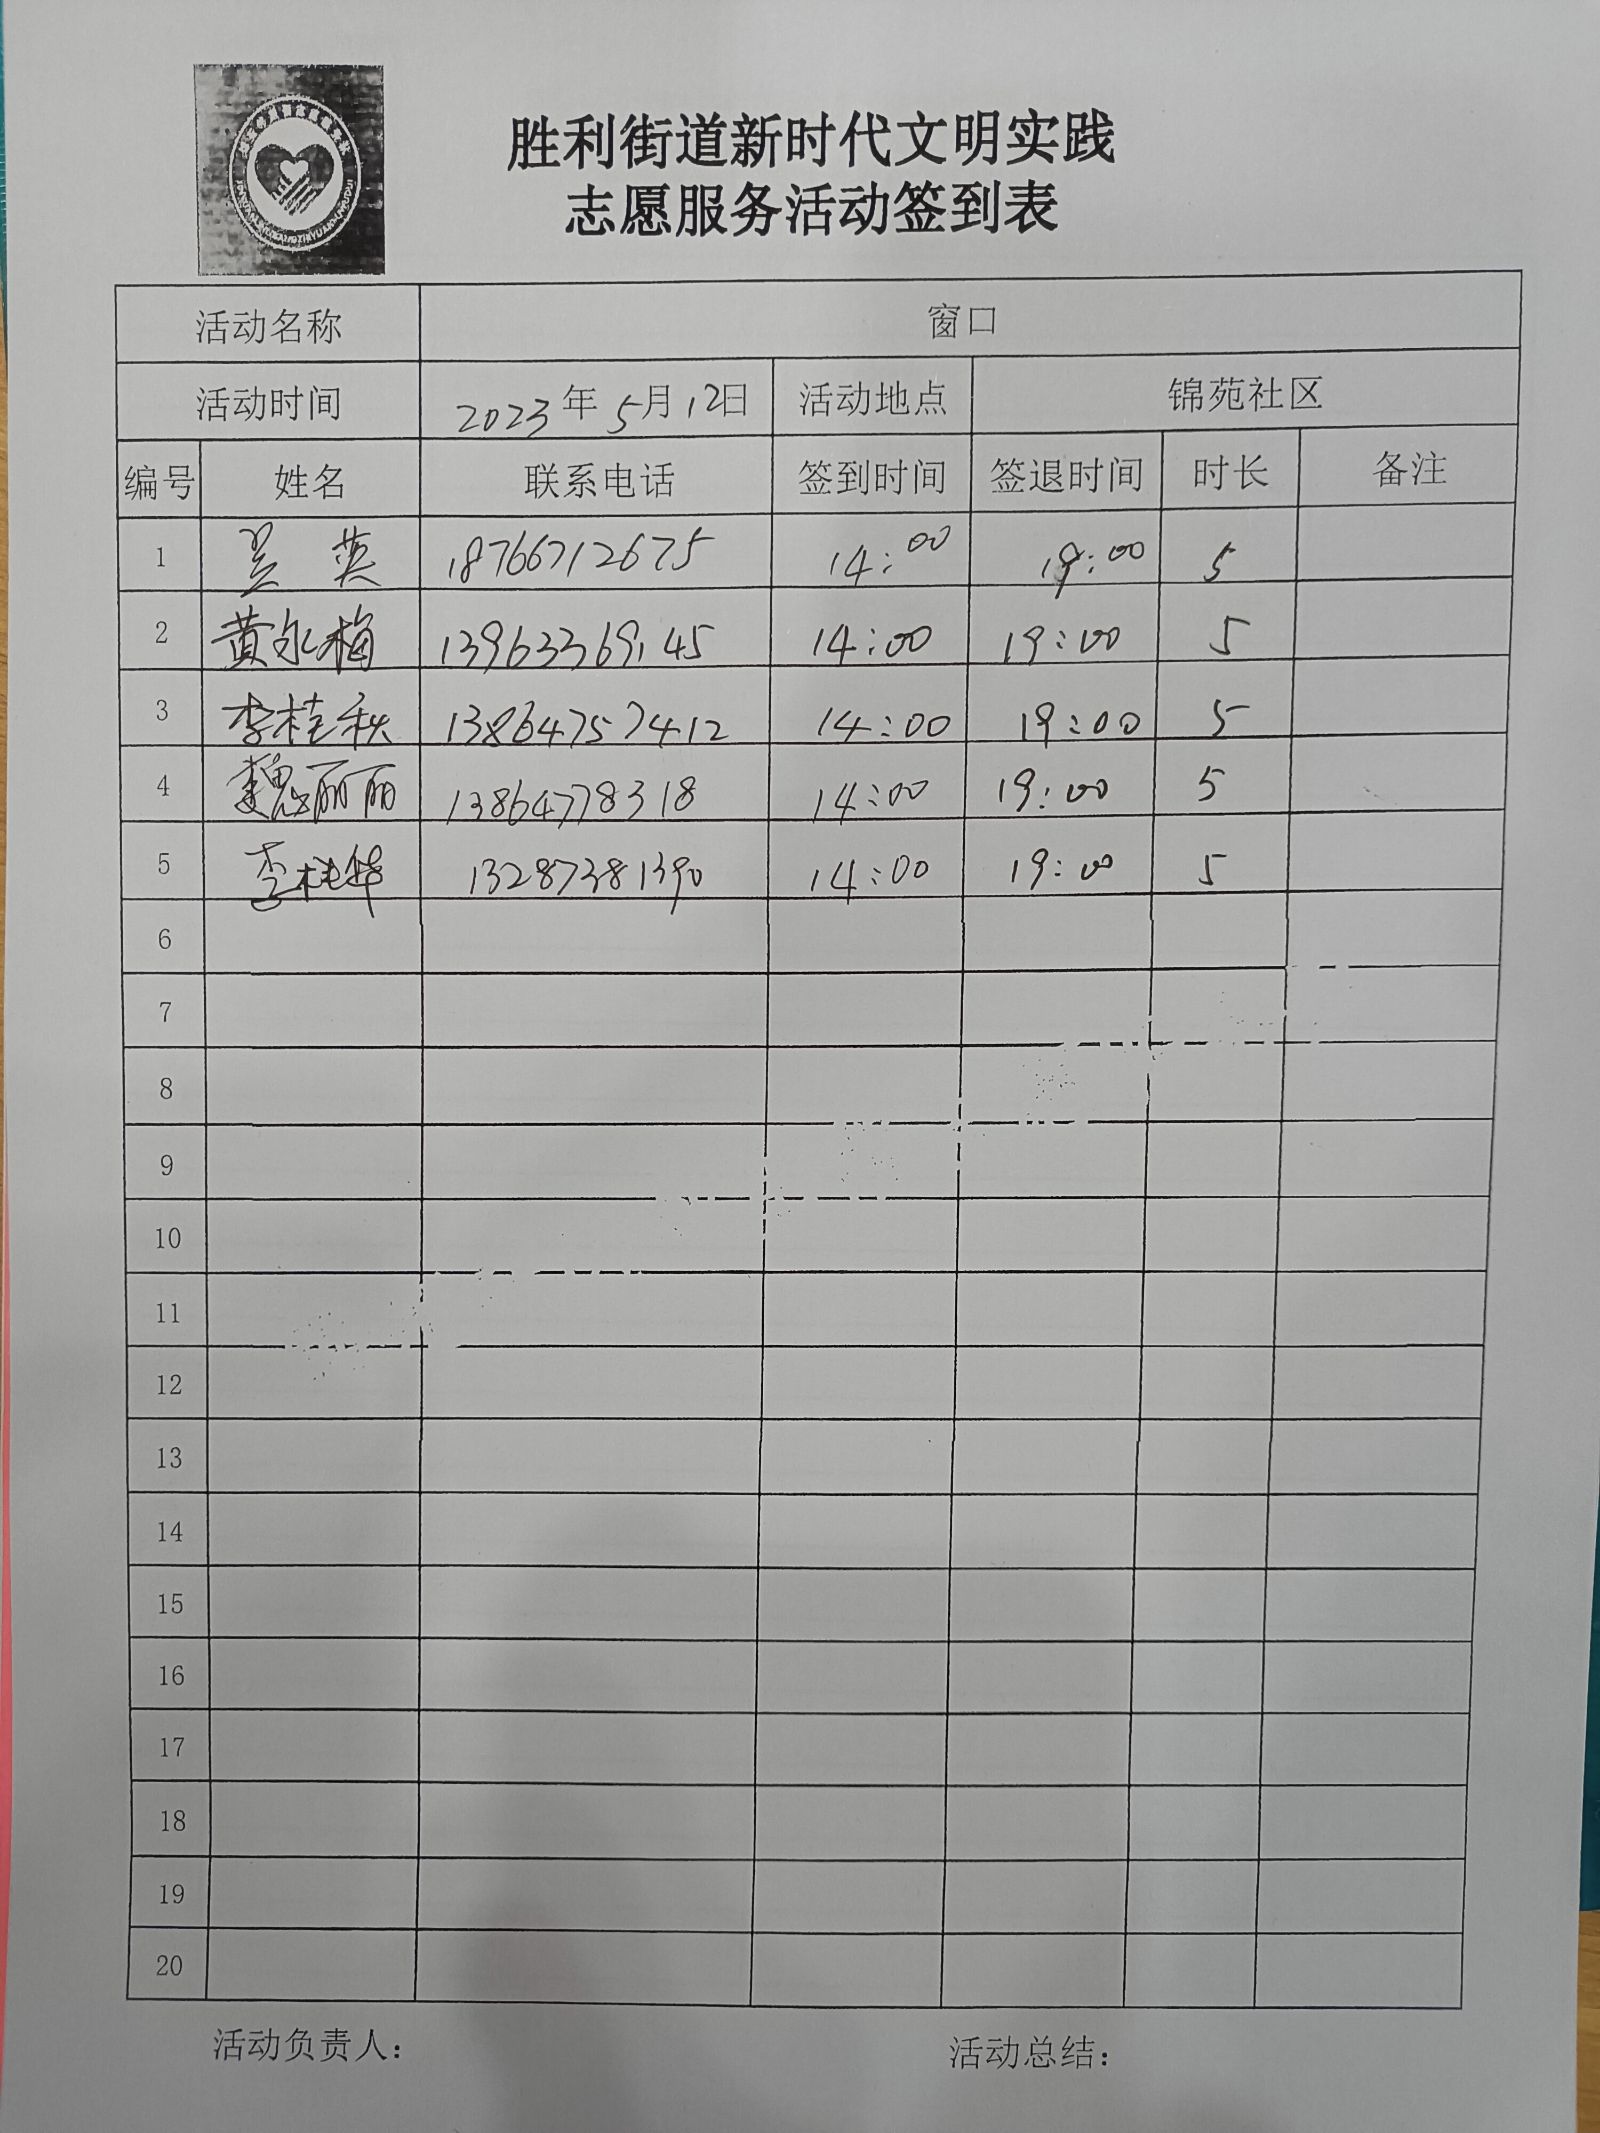 胜利街道新时代文明实践
志愿服务活动签到表
活动名称 窗口
活动时间 2023年5月12日 活动地点 锦苑社区
编号 姓名 联系电话 签到时间 签退时间 时长 备注
1 吴英 18766712675 14:00 19:00 5
2 黄永梅 13963369145 14:00 19:00 5
3 李桂秋 13864757412 14:00 19:00 5
4 魏丽丽 13864778318 14:00 19:00 5
5 李桂华 13287381390 14:00 19:00 5
6
7
8
9
10
11
12
13
14
15
16
17
18
19
20
活动负责人： 活动总结：